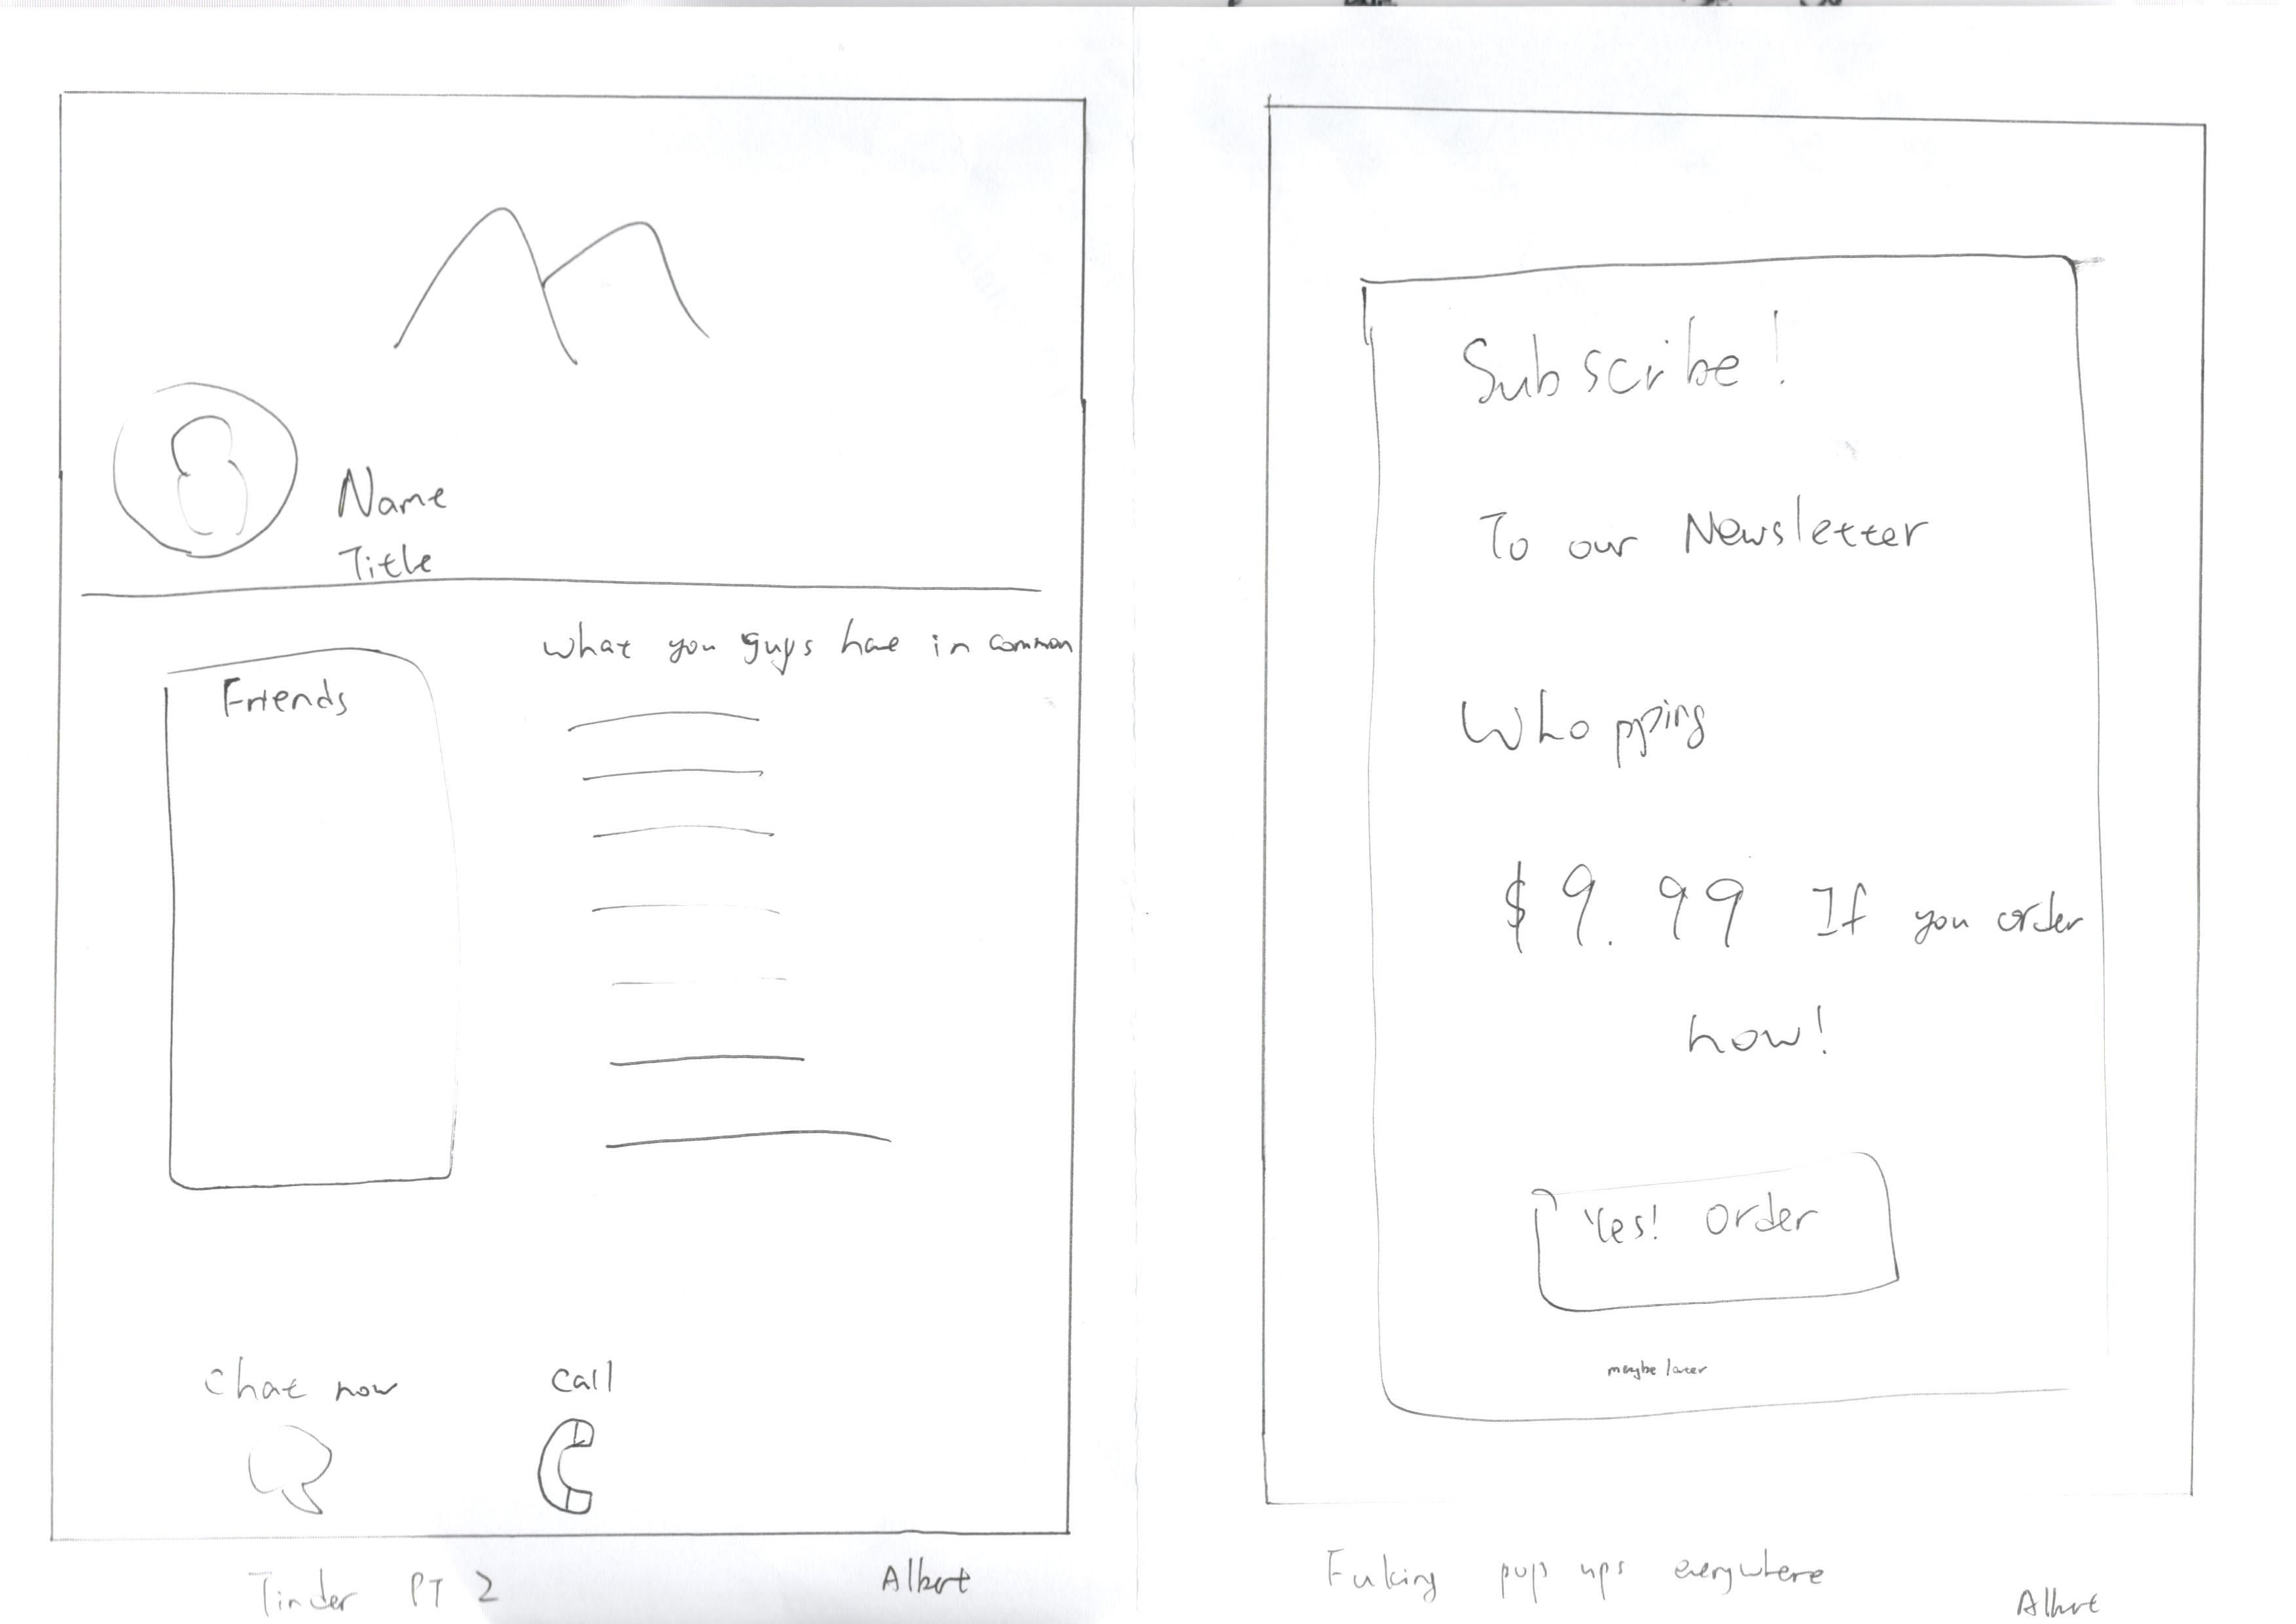 Name
Title
what you guys have in common
Friends
Chat now
call
Tinder PT 2
Albert
Subscribe!
To our Newsletter
Whopping
$9.99 If you order
now!
Yes! Order
maybe later
Fuking pop ups everywhere
Albert